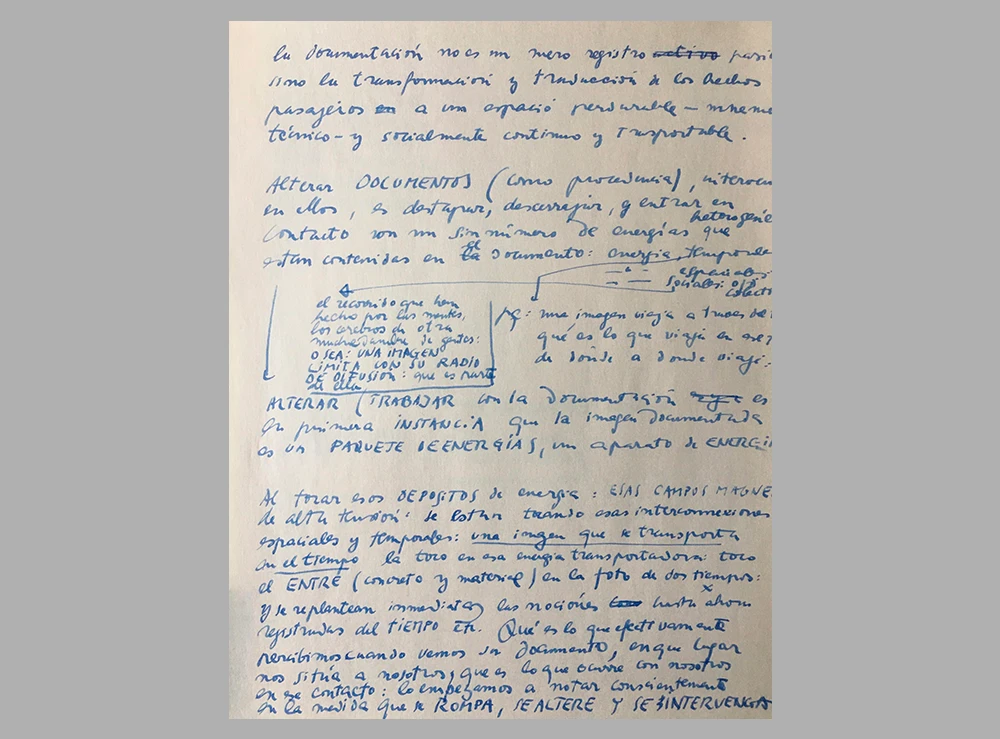 La documentación no es un mero registro activo pasi
sino la transformación y traducción de los hechos
pasajeros en a un espació perdurable - mneme
técnico - y socialmente continuo y trasportable.
Alterar DOCUMENTOS (como procedencia), interve
en ellos, es destapar, descerrajar, y entrar en
contacto con un sin número de heterogéne energías que
están contenidas en el la documento: energía temporale
" espaciales:
sociales: o/y
colecti
el recorrido que han
hecho por las mentes,
los cerebros de otra
muchedumbre de gentes:
O SEA: UNA IMAGEN
LIMITA CON SU RADIO
DE DIFUSIÓN: que es parte
de ella.
pq: una imagen viaja a traves del
qué es lo que viaja en ese
de dónde a donde viaja:
ALTERAR (TRABAJAR con la documentación es
en primera INSTANCIA que la imagen documentada
es un PAQUETE DE ENERGÍAS, un aparato de ENERGÍ
Al tocar esos DEPOSITOS de energia: ESAS CAMPOS MAGNE
de alta tensión: se estan tocando esas interconnexiones
espaciales y temporales: una imagen que se transporta
en el tiempo la toco en esa energía transportadora: toco
el ENTRE (concreto y material) en la foto de dos tiempos:
y se replantean inmediatas las nociones hasta ahora
registradas del TIEMPO etc. Qué es lo que efectivamente
percibimos cuando vemos un documento, en que lugar
nos sitúa a nosotros, que es lo que ocurre con nosotros
en ese contacto: lo empezamos a notar conscientemente
en la medida que se ROMPA, SE ALTERE Y SE INTERVENGA